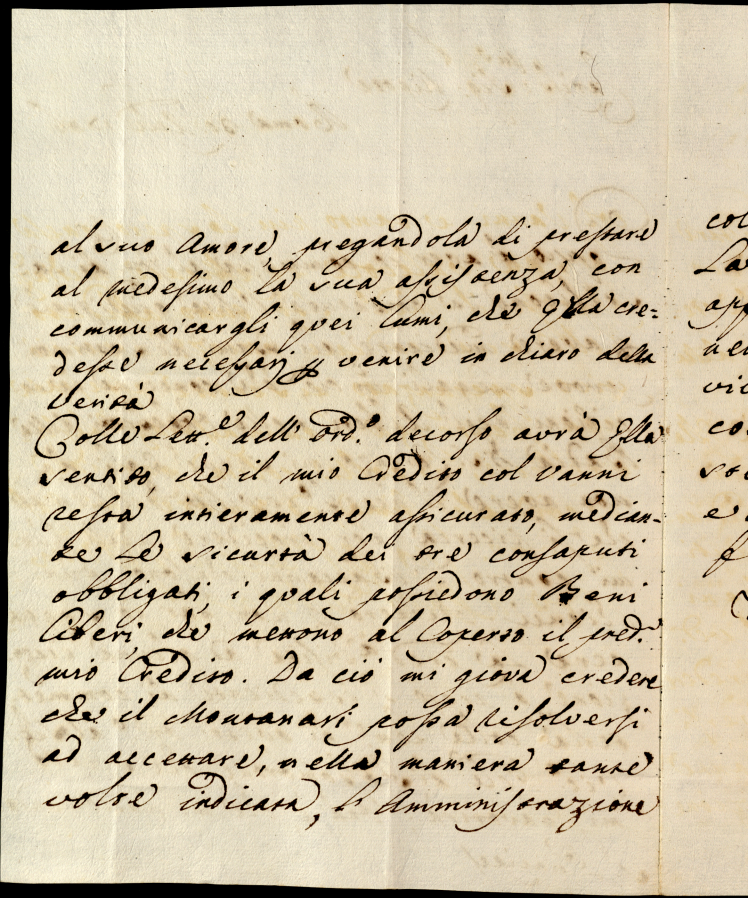 al suo Amore, pregandola di prestare
al medesimo la sua assistenza, con
communicargli quei lumi, che Ella cre=
desse necessarj p venire in chiaro della
verità
Colle Lett.e dell' ord.o decorso avrà Ella
sentito, che il mio Credito col Vanni
resta intieramente assicurato, median-
te le sicurtà dei tre consaputi
obbligati, i quali possiedono Beni
liberi, che mettono al Coperto il pred.o
mio Credito. Da ciò mi giova credere
che il Montanari possa risolversi
ad accettare, nella maniera tante
volte indicata, l'Amministrazione
col
La
app
vic
co
e